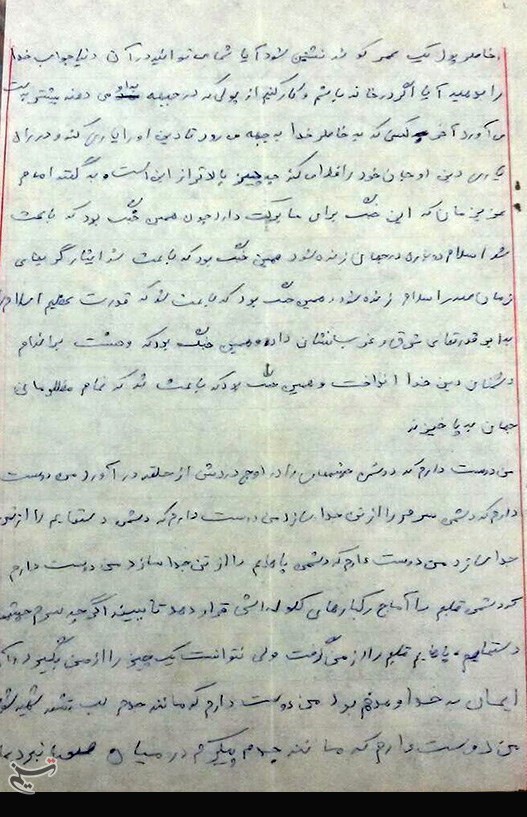 بخاطر پول یک عمر گوشه نشین شود آیا شما می توانید در آن دنیا جواب خدا
را بدهید آیا اگر در خانه باشم و کار کنم از پولی که در جبهه به او می دهند بیشتر پست
می آورد آخر کسی که به خاطر خدا به جبهه می رود تا دین او را یاری کند و در راه
یاری دین او جان خود را فدا می کند چه چیز بالاتر از این است و به گفته امام
عزیزمان که این جنگ برای ما برکت دارد چون همین جنگ بود که باعث
شد اسلام دوباره در جهان زنده شود همین جنگ بود که باعث شد ایثارگریهای
زمان صدر اسلام زنده شود همین جنگ بود که باعث شد که قدرت عظیم اسلام را
به ابرقدرتهای شرق و غرب نشان داد و همین جنگ بود که وحشت بر اندام
دشمنان دین خدا انداخت و همین جنگ بود که باعث شد که تمام مظلومان
جهان به پا خیزند
من دوست دارم که دشمن چشمهایم را در اوج دردش از حلقه در آورد من دوست
دارم که دشمن سرم را از تن جدا سازد من دوست دارم که دشمن دستهایم را از تن
جدا سازد من دوست دارم که دشمن پاهایم را از تن جدا سازد من دوست دارم
که دشمن قلبم را آماج رگبارهای گلوله اش قرار دهد تا ببیند اگر چه سرم چشم
دستهایم پاهایم قلبم را از من گرفت ولی نتوانست یک چیز را از من بگیرد و آن
ایمان به خدا و هدفم بود من دوست دارم که مانند جدم لب تشنه شهید شوم
من دوست دارم که مانند جدم پیکرم در میان نبرد
تسنیم